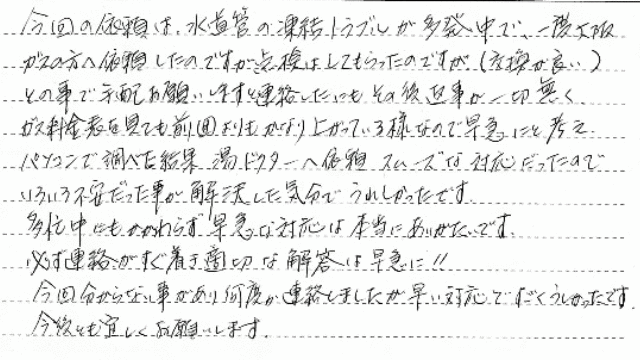 今回の依頼は、水道管の凍結トラブルが多発中で、一度大阪
ガスの方へ依頼したのですが点検はしてもらったのですが(交換が良い)
との事で手配お願いしますと連絡したにもその後返事が一切無く
ガス料金表を見ても前回よりもかなり上がっている様なので早急にと考え
パソコンで調べた結果 湯ドクターへ依頼 スムーズな対応だったので
いろいろ不安だった事が解決した気分でうれしかったです。
多忙中にもかかわらず早急な対応は本当にありがたいです。
必ず連絡がすぐ着き適切な解答は早急に!!
今回分からない事があり何度か連絡しましたが早い対応ですごくうれしかったです.
今後とも宜しくお願いします.